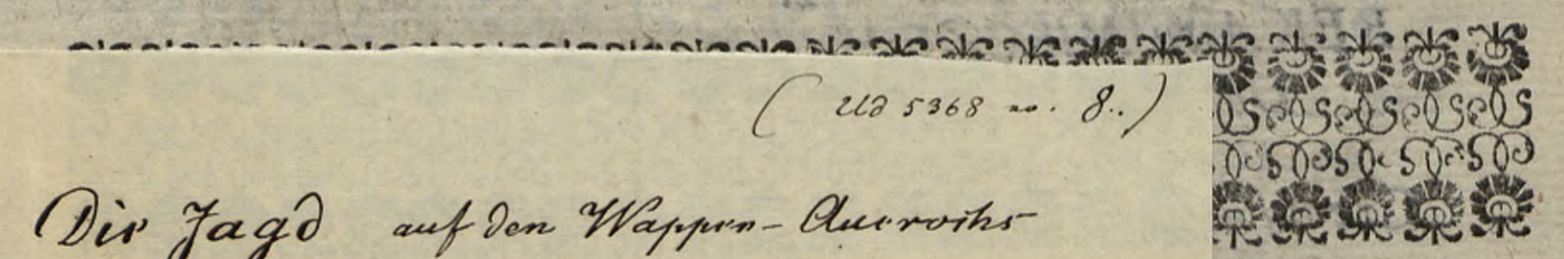 ( Ud 5368 no. 8..)
Die Jagd auf den Wappen-Auerochs